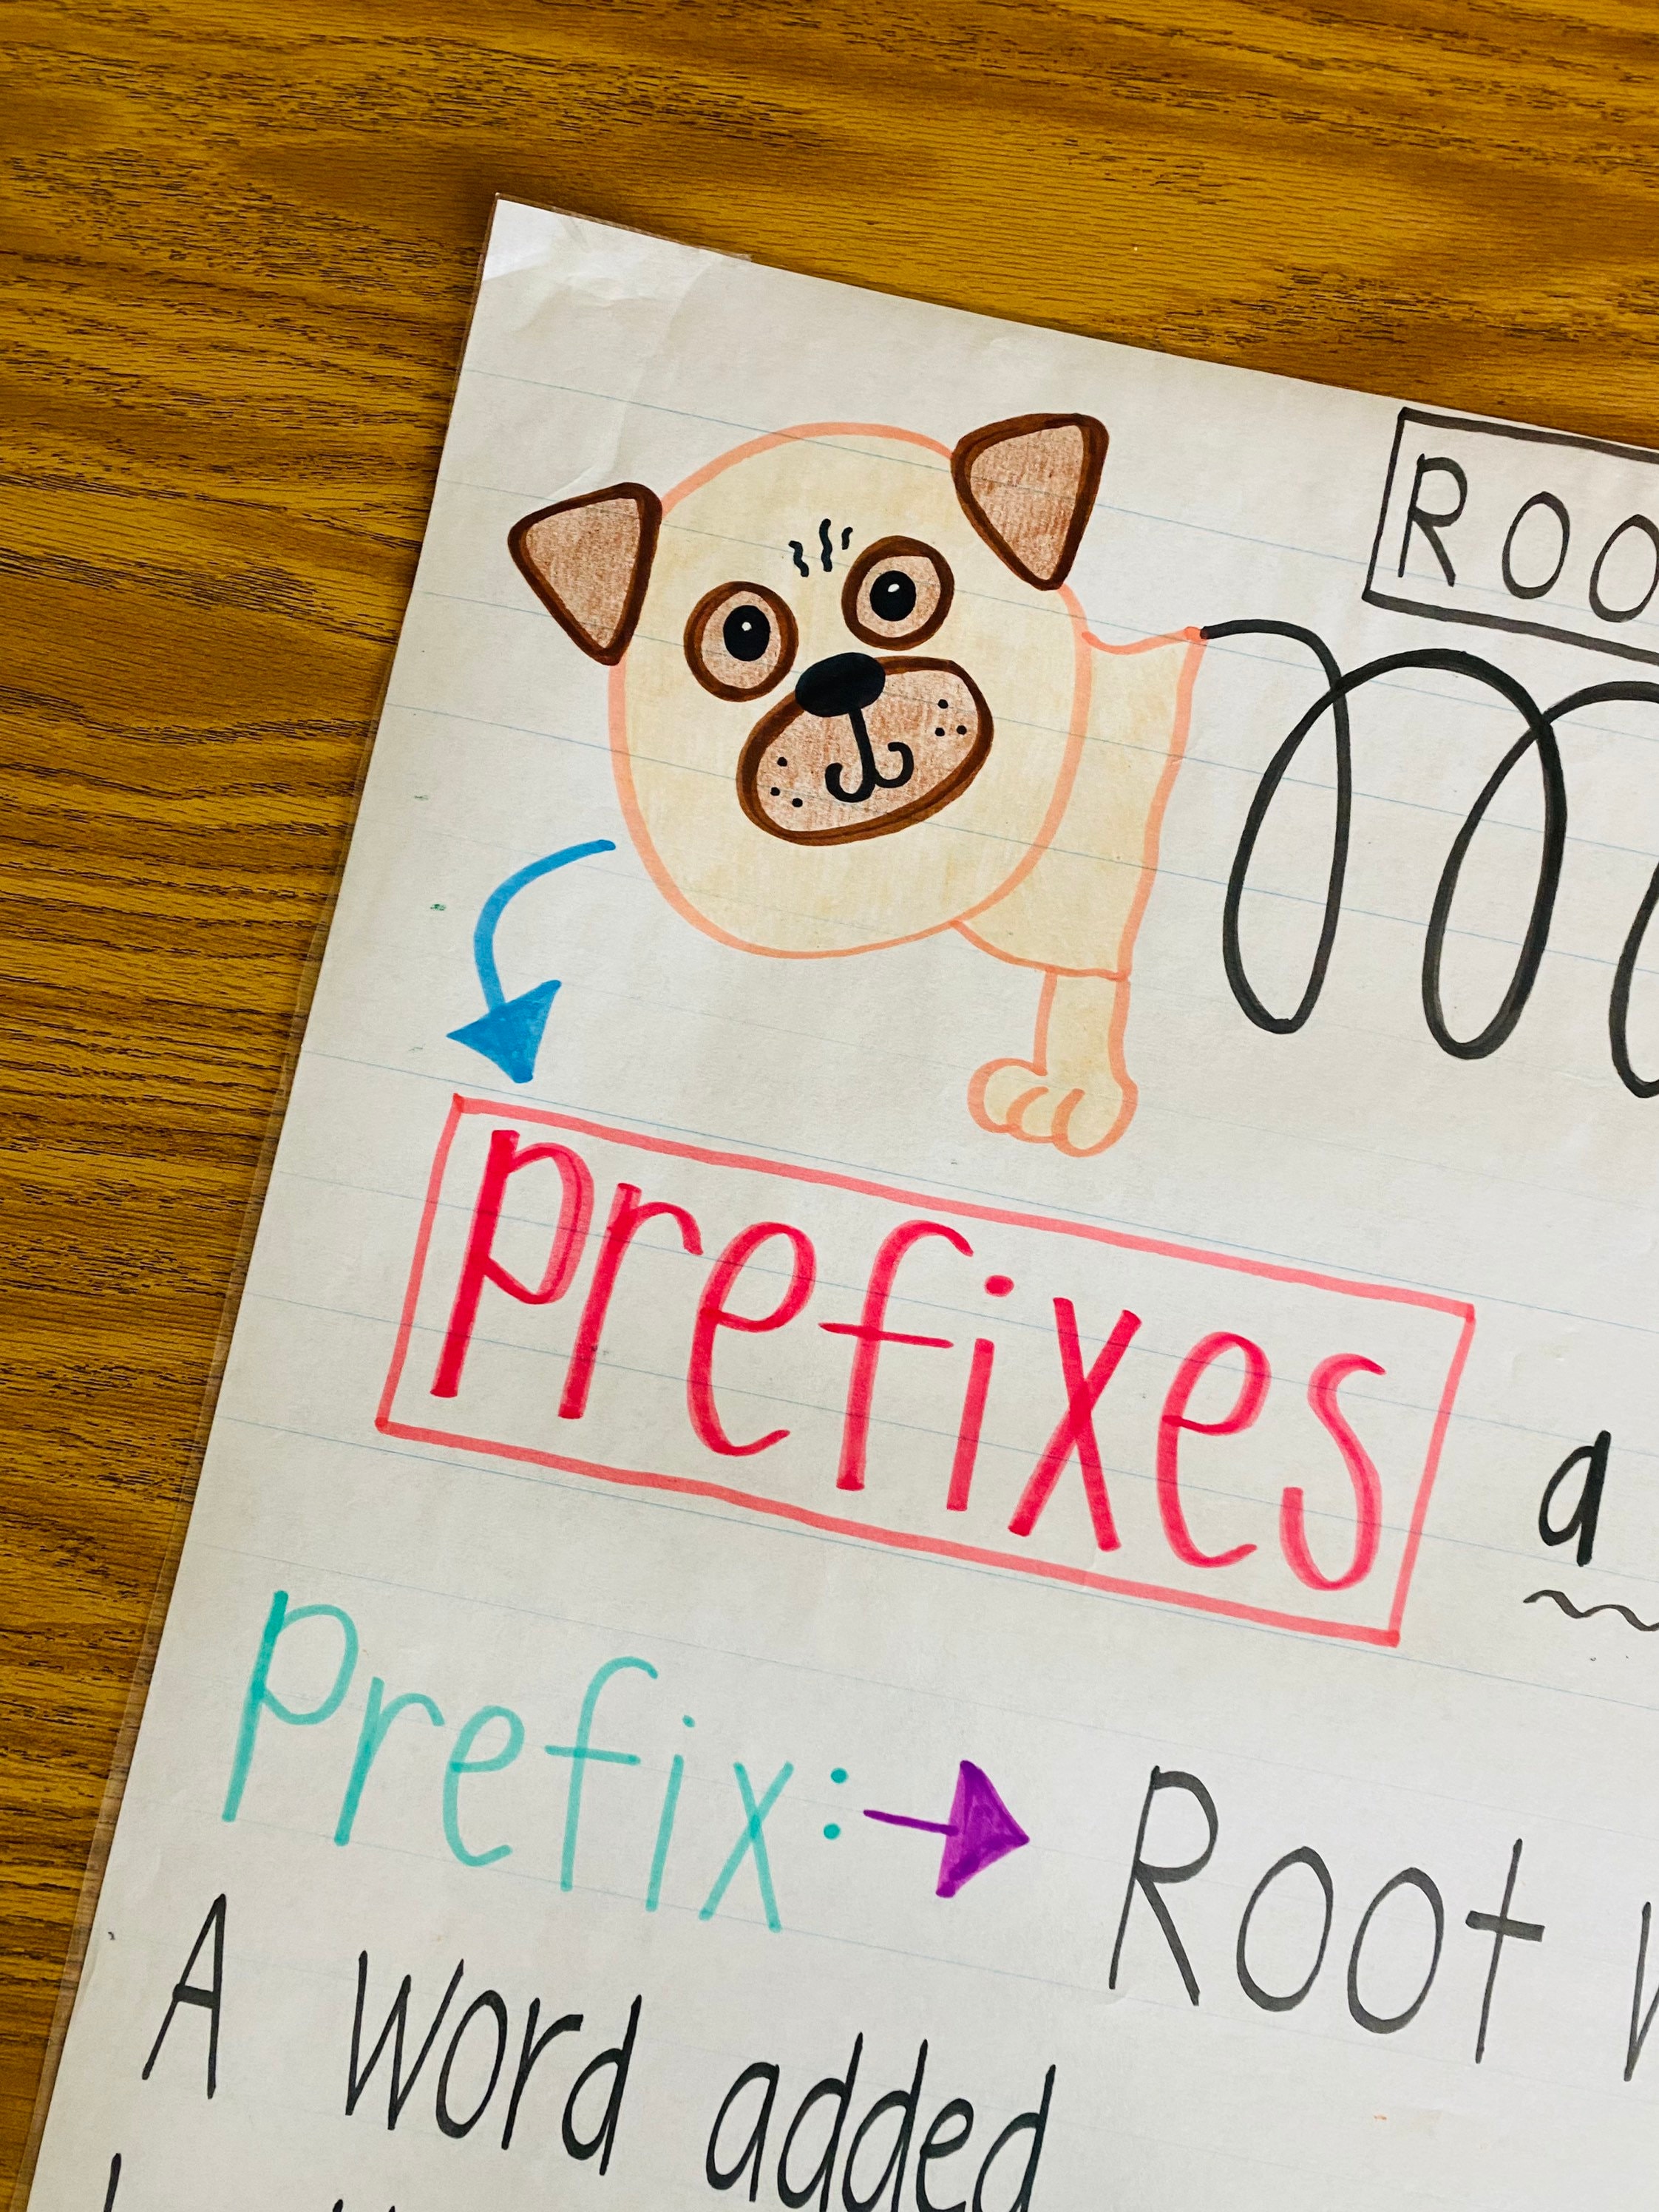 ROO
Prefixes a
Prefix: → Root
A word added